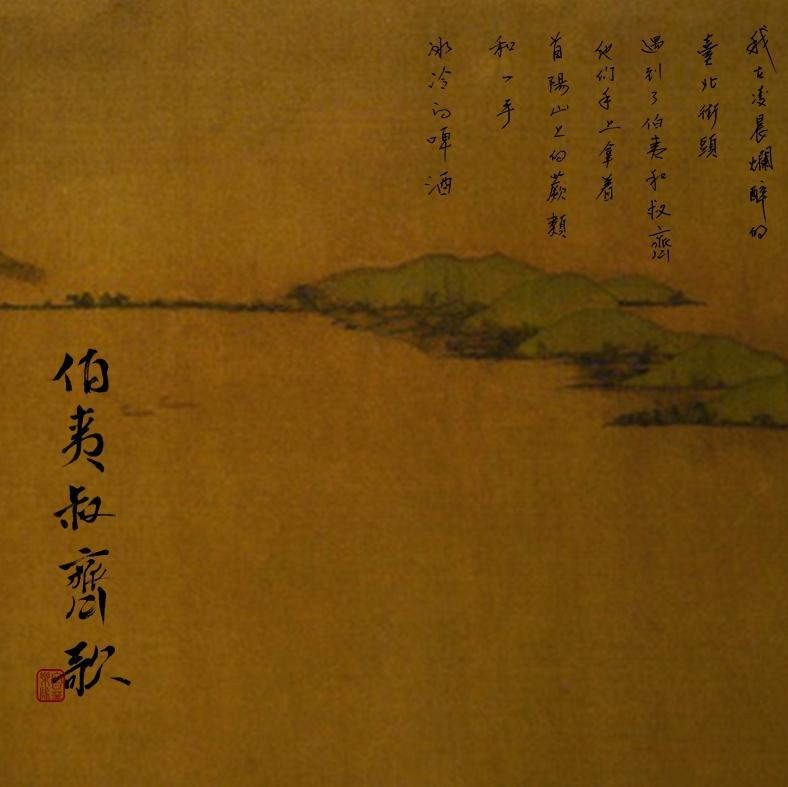 我在凌晨爛醉的
臺北街頭
遇到了伯夷和叔齊
他們手上拿着
首陽山上的蕨類
和一手
冰冷的啤酒
伯夷叔齊歌